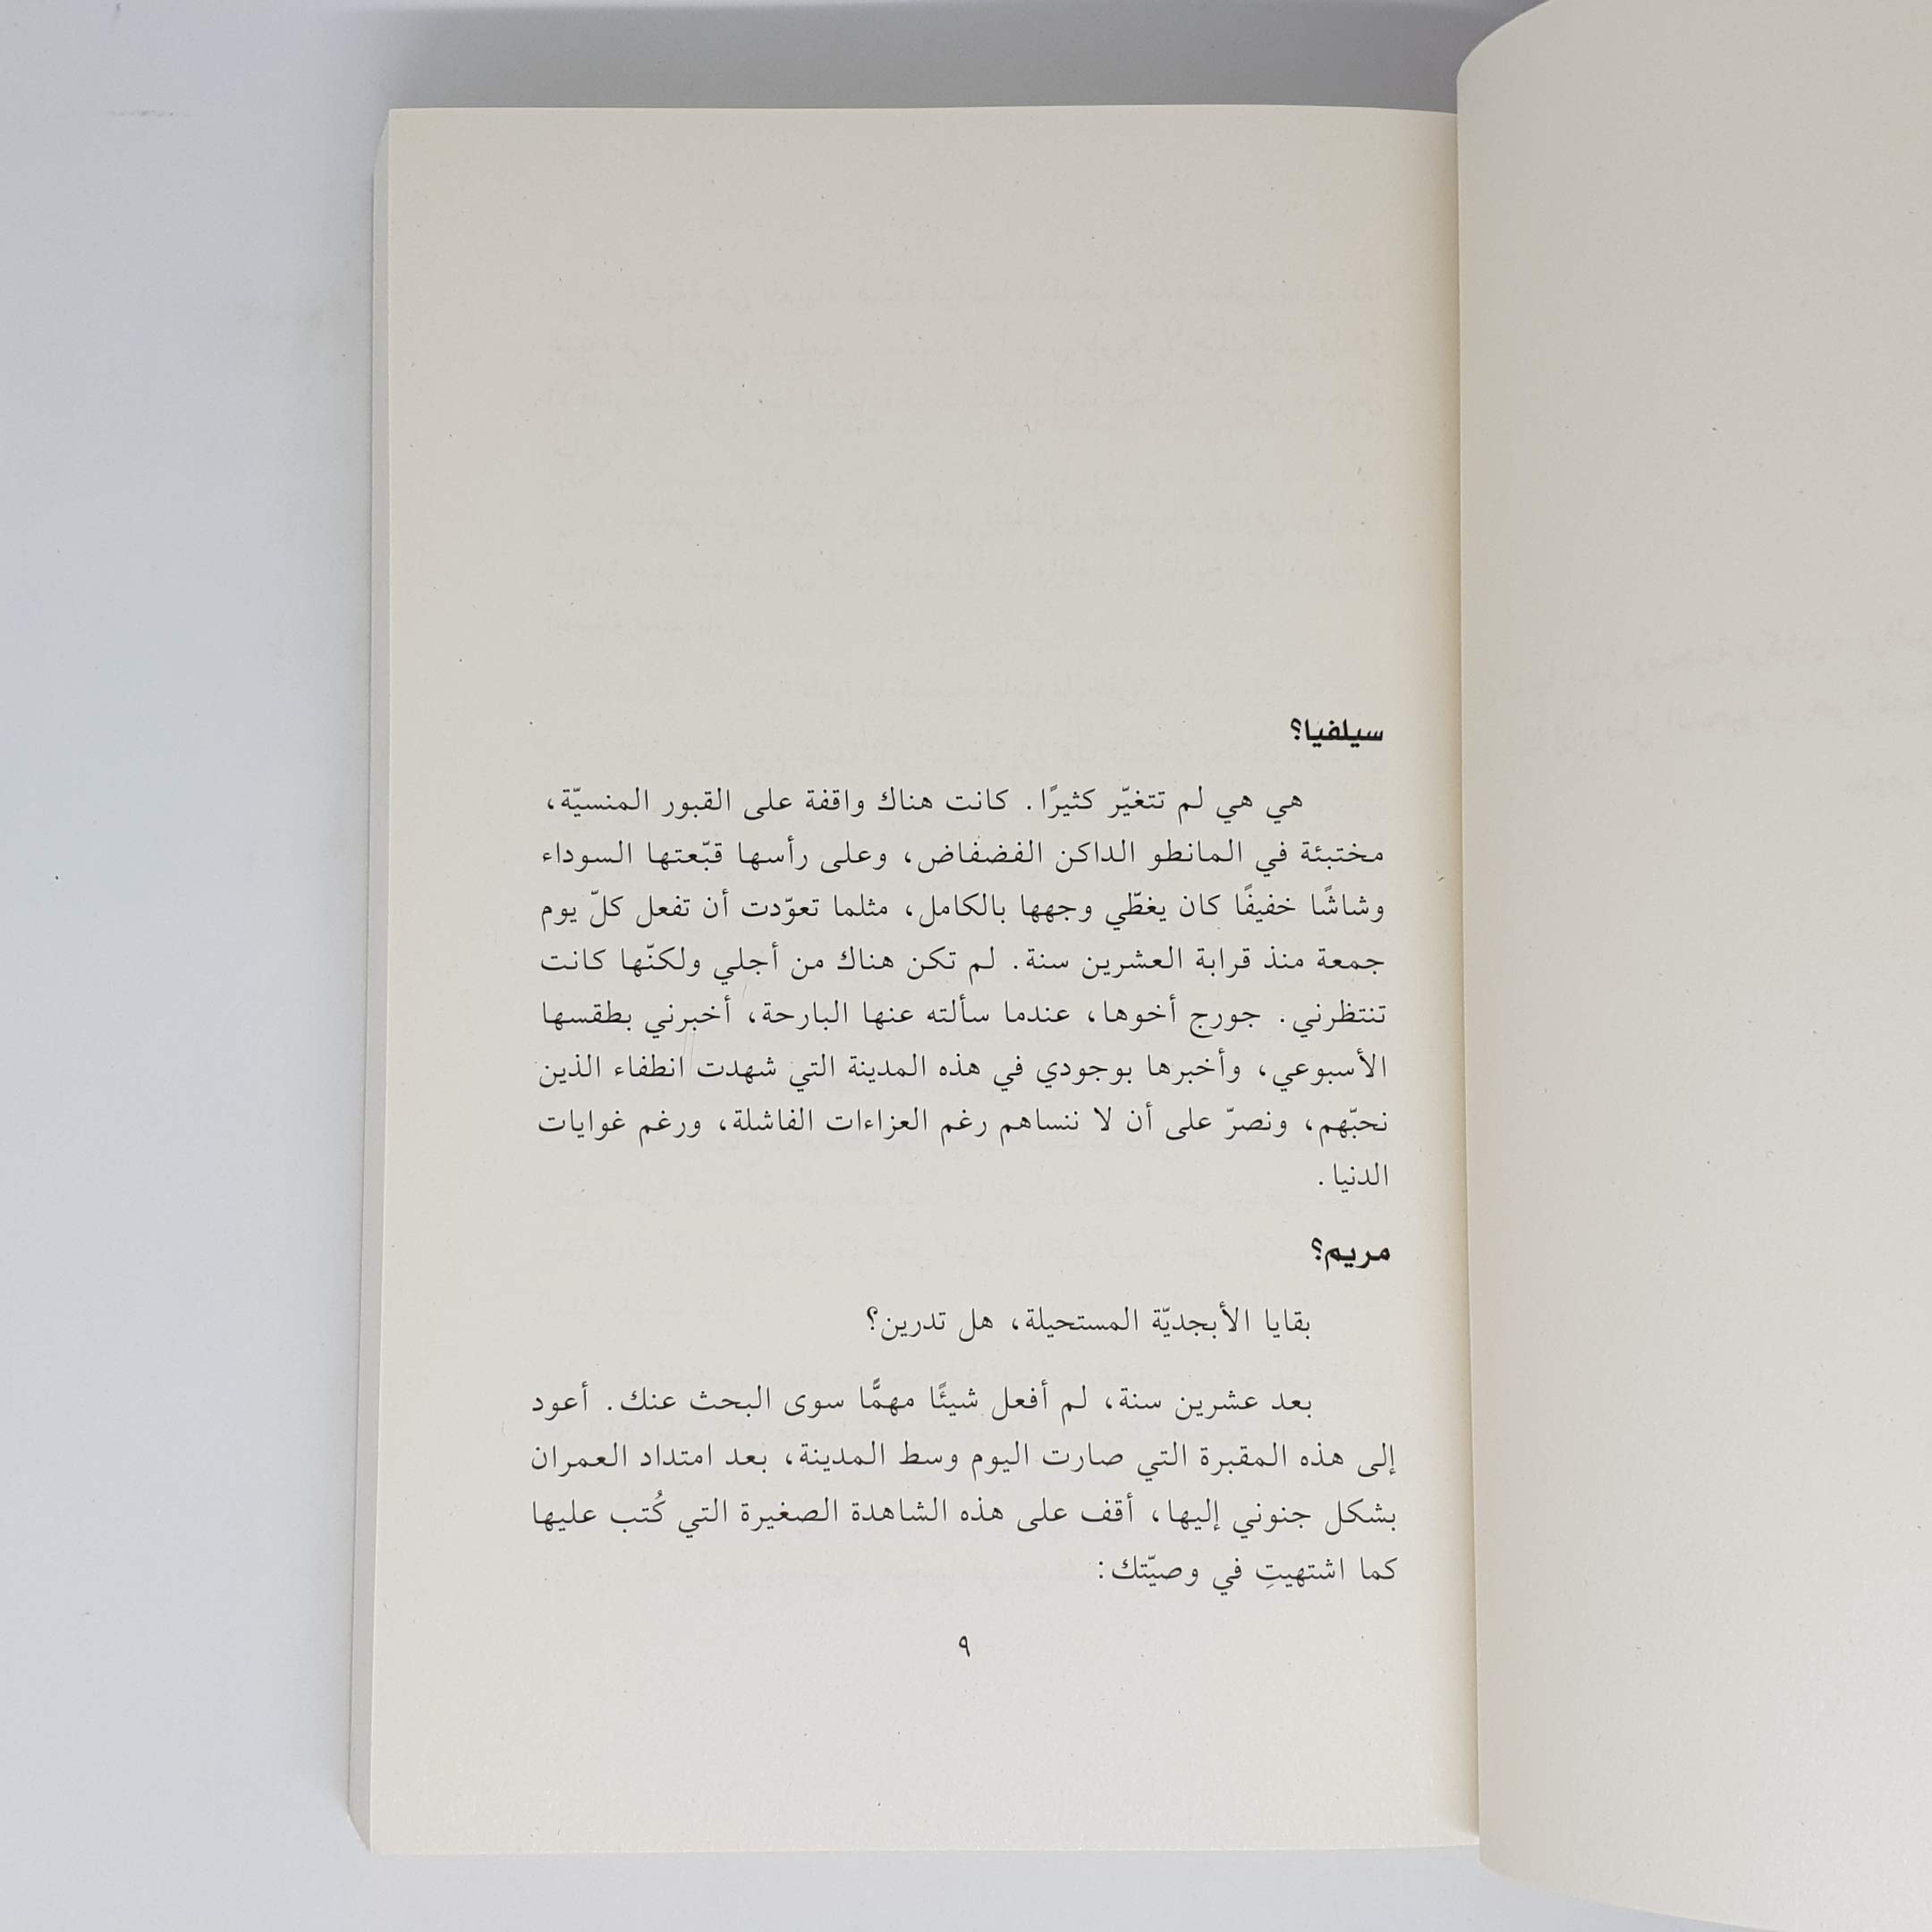 سيلفيا؟
هي هي لم تتغيّر كثيرًا. كانت هناك واقفة على القبور المنسيّة،
مختبئة في المانطو الداكن الفضفاض، وعلى رأسها قبّعتها السوداء
وشاشًا خفيفًا كان يغطّي وجهها بالكامل، مثلما تعوّدت أن تفعل كلّ يوم
جمعة منذ قرابة العشرين سنة. لم تكن هناك من أجلي ولكنّها كانت
تنتظرني. جورج أخوها، عندما سألته عنها البارحة، أخبرني بطقسها
الأسبوعي، وأخبرها بوجودي في هذه المدينة التي شهدت انطفاء الذين
نحبّهم، ونصرّ على أن لا ننساهم رغم العزاءات الفاشلة، ورغم غوايات
الدنيا.
مريم؟
بقايا الأبجديّة المستحيلة، هل تدرين؟
بعد عشرين سنة، لم أفعل شيئًا مهمًّا سوى البحث عنك. أعود
إلى هذه المقبرة التي صارت اليوم وسط المدينة، بعد امتداد العمران
بشكل جنوني إليها، أقف على هذه الشاهدة الصغيرة التي كُتب عليها
كما اشتهيتِ في وصيّتك:
٩